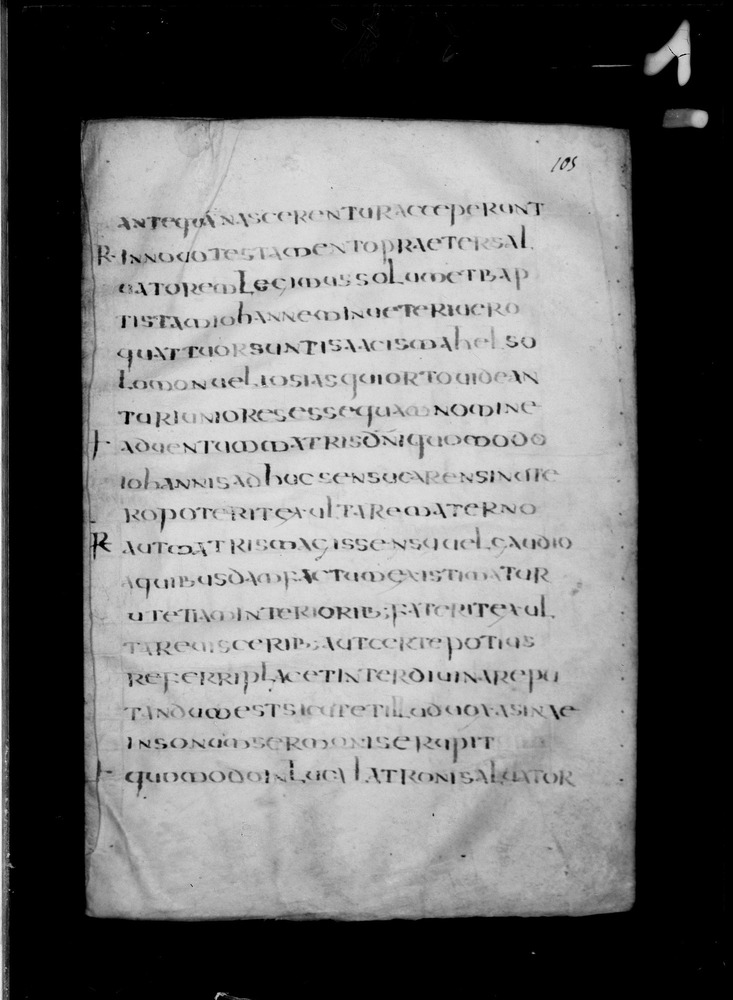 105
ANTEQUĀNASCERENTURACCEPERUNT
R· INNOUOTESTAMENTOPRAETERSAL
UATOREMLEGIMUSSOLUMETBAP
TISTAMIOHANNEMINUETERIUERO
QUATTUORSUNTISAACISMAHELSO
LOMONUELIOSIASQUIORTOUIDEAN
TURIUNIORESESSEQUAMNOMINE
ADUENTUMMATRISDN̄IQUOMODO
IOHANNISADHUCSENSUCARENSINUTE
ROPOTERITEXULTAREMATERNO
R AUTMATRISMAGISSENSUUELGAUDIO
AQUIBUSDAMFACTUMEXISTIMATUR
UTETIAMINTERIORIB;FATERITEXUL
TAREUISCERIB;AUTCERTEPOTIUS
REFERRIPLACETINTERDIUINAREPU
TANDUMESTSICUTETILLUDUOXASINAE
INSONUMSERMONISERUPIT
QUOMODOINLUCALATRONISALUATOR